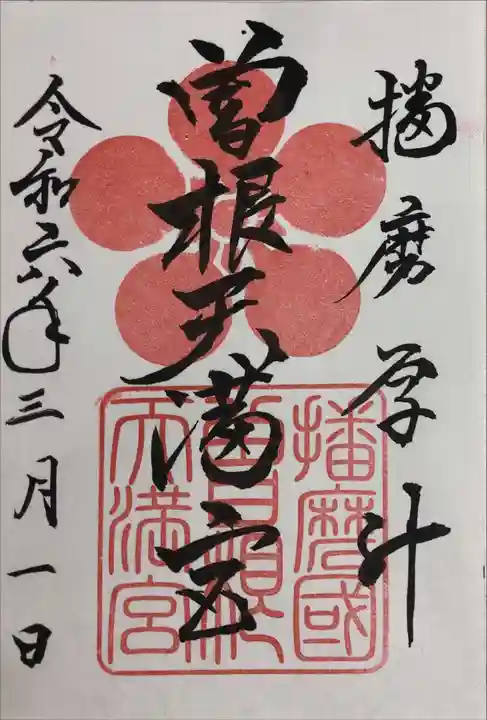 播磨
曽根天満宮
令和六年三月一日
播磨國
天満宮